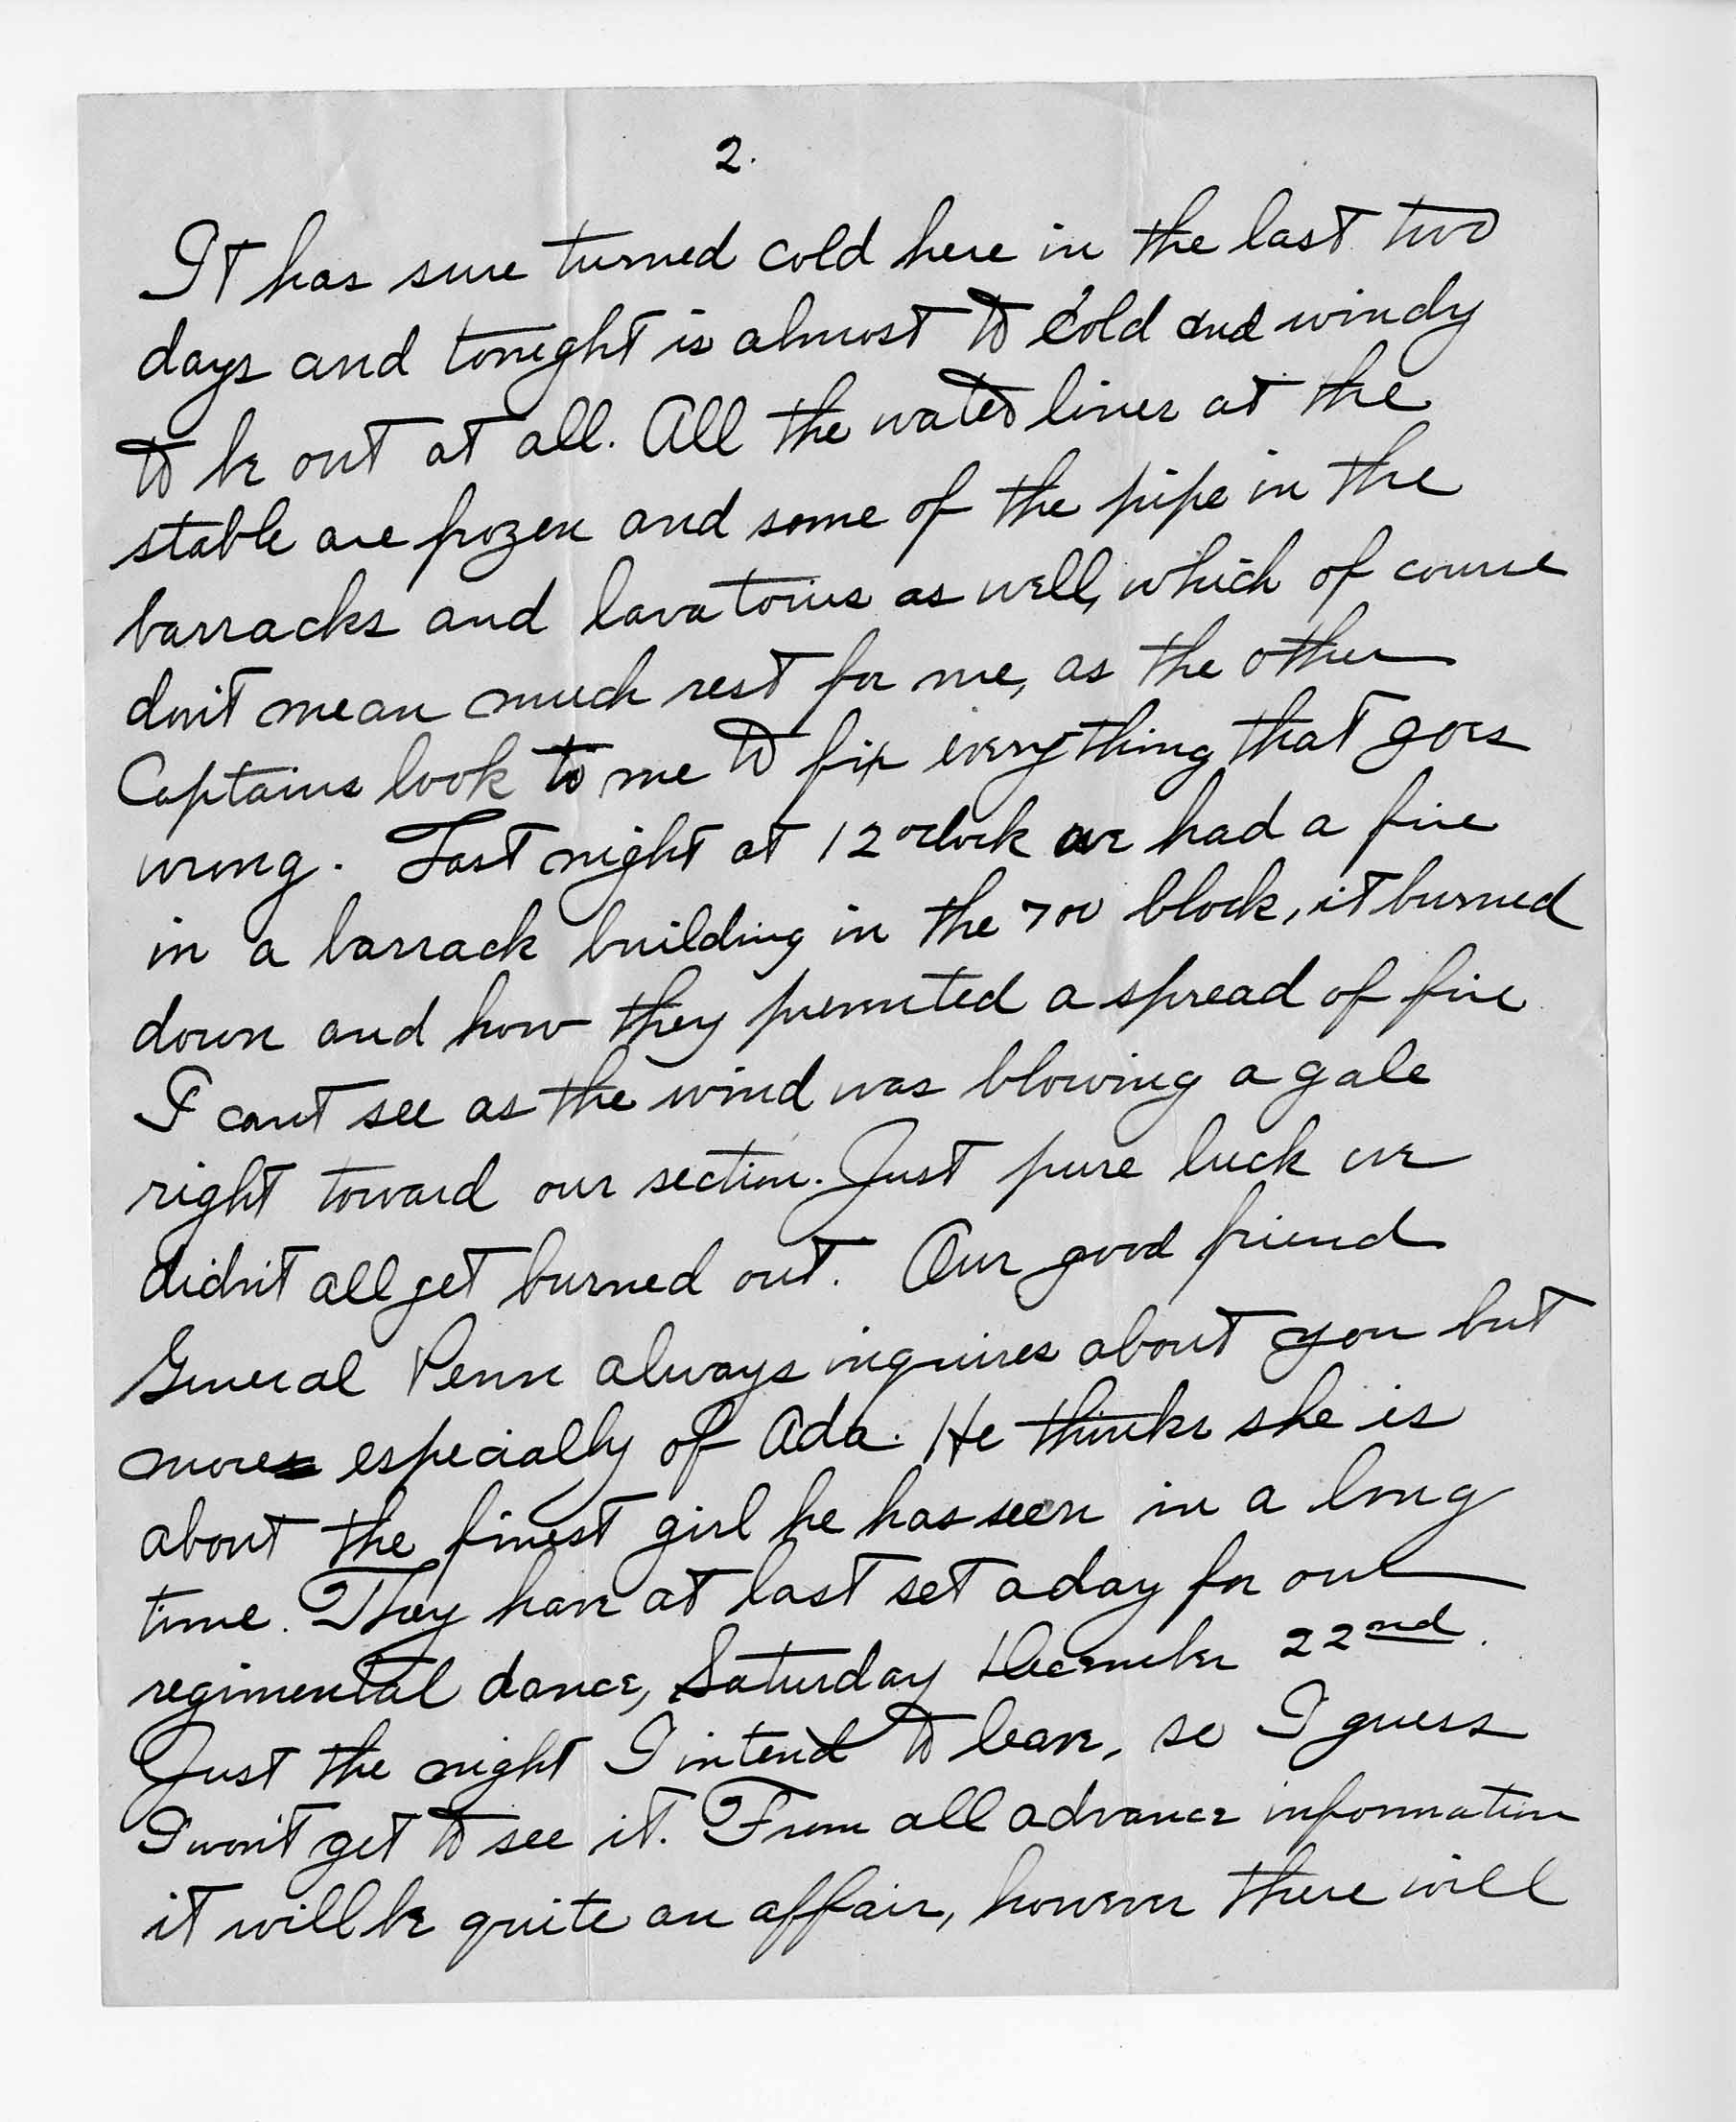 2.
It has sure turned cold here in the last two
days and tonight is almost to cold and windy
to be out at all. All the water lines at the
stable are frozen and some of the pipe in the
barracks and lavatories as well, which of course
don't mean much rest for me, as the other
Captains look to me to fix everything that goes
wrong. Last night at 12 o'clock we had a fire
in a barrack building in the 700 block, it burned
down and how they prevented a spread of fire
I can't see as the wind was blowing a gale
right toward our section. Just pure luck we
didn't all get burned out. Our good friend
General Penn always inquires about you but
more especially of Ada. He thinks she is
about the finest girl he has seen in a long
time. They have at last set a day for our
regimental dance, Saturday December 22nd.
Just the night I intend to leave, so I guess
I won't get to see it. From all advance information
it will be quite an affair, however there will